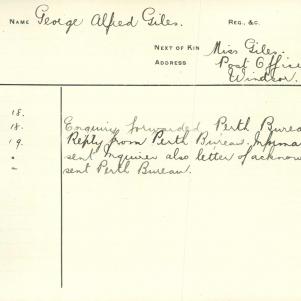 NAME George Alfred Giles. REG. &C.
NEXT OF KIN Miss Giles.
ADDRESS Post Office
Windsor.
18.
18. Enquiry forwarded Perth Burea
19. Reply from Perth Bureau. Informa
" sent Inquirer also letter of acknow
" sent Perth Bureau.